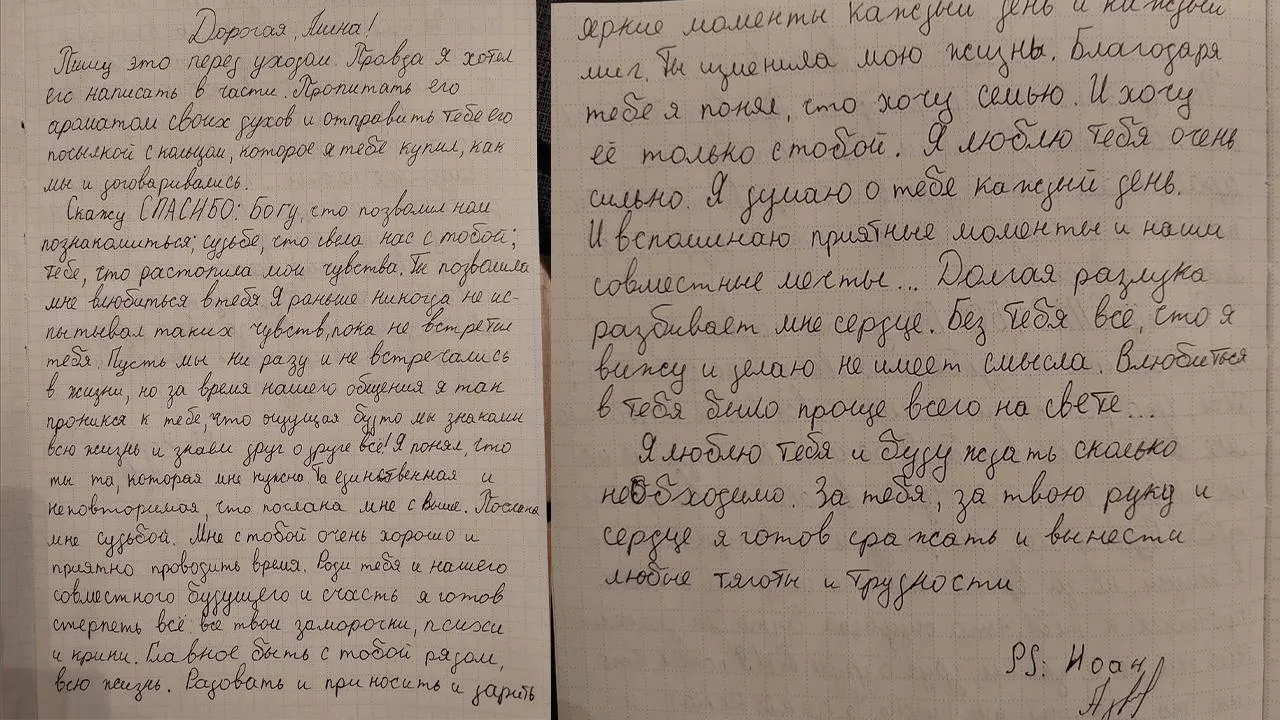 Дорогая, Лина!
Пишу это перед уходом. Правда я хотел
его написать в части. Пропитать его
ароматом своих духов и отправить тебе его
посылкой с кольцом, которое я тебе купил, как
мы и договаривались.
Скажу СПАСИБО: Богу, что позволил нам
познакомиться; судьбе, что свела нас с тобой;
тебе, что растопила мои чувства. Ты позволила
мне влюбиться в тебя. Я раньше никогда не ис-
пытывал таких чувств, пока не встретил
тебя. Пусть мы ни разу и не встречались
в жизни, но за время нашего общения я так
проникся к тебе, что ощущая будто мы знакомы
всю жизнь и знаем друг о друге всё! Я понял, что
ты та, которая мне нужна. Та единственная и
неповторимая, что послана мне с выше. Послана
мне судьбой. Мне с тобой очень хорошо и
приятно проводить время. Ради тебя и нашего
совместного будущего и счасть я готов
стерпеть всё все твои заморочки, психи
и крики. Главное быть с тобой рядом,
всю жизнь. Радовать и приносить и дарить
яркие моменты каждый день и каждый
миг. Ты изменила мою жизнь. Благодаря
тебе я понял, что хочу семью. И хочу
её только с тобой. Я люблю тебя очень
сильно. Я думаю о тебе каждый день.
И вспоминаю приятные моменты и наши
совместные мечты... Долгая разлука
разбивает мне сердце. Без тебя всё, что я
вижу и делаю не имеет смысла. Влюбиться
в тебя было проще всего на свете...
Я люблю тебя и буду ждать сколько
необходимо. За тебя, за твою руку и
сердце я готов сражать и вынести
любые тяготы и трудности
PS: Иоан